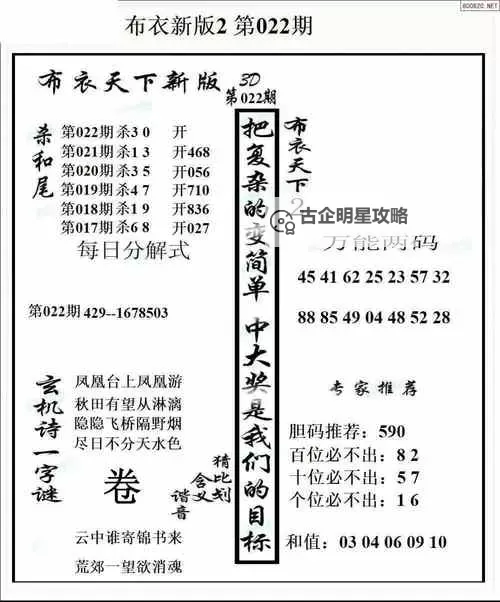 800820.NET
布衣新版2 第022期
布衣天下新版 3D
第022期
杀和尾
第022期 杀3 0 开
第021期 杀1 3 开468
第020期 杀3 5 开056
第019期 杀4 7 开710
第018期 杀1 9 开836
第017期 杀6 8 开027
每日分解式
第022期 429--1678503
玄机诗一字谜
凤凰台上凤凰游
秋田有望从淋漓
隐隐飞桥隔野烟
尽日不分天水色
卷
猜比划
含义
谐音
云中谁寄锦书来
荒郊一望欲消魂
把复杂的变简单 中大奖是我们的目标
布衣天下2
古企明星攻略
万能两码
45 41 62 25 23 57 32
88 85 49 04 48 52 28
专家推荐
胆码推荐：590
百位必不出：8 2
十位必不出：5 7
个位必不出：1 6
和值：03 04 06 09 10